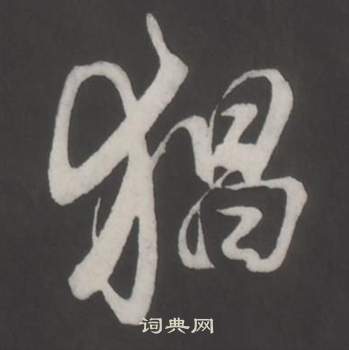 猲
词典网